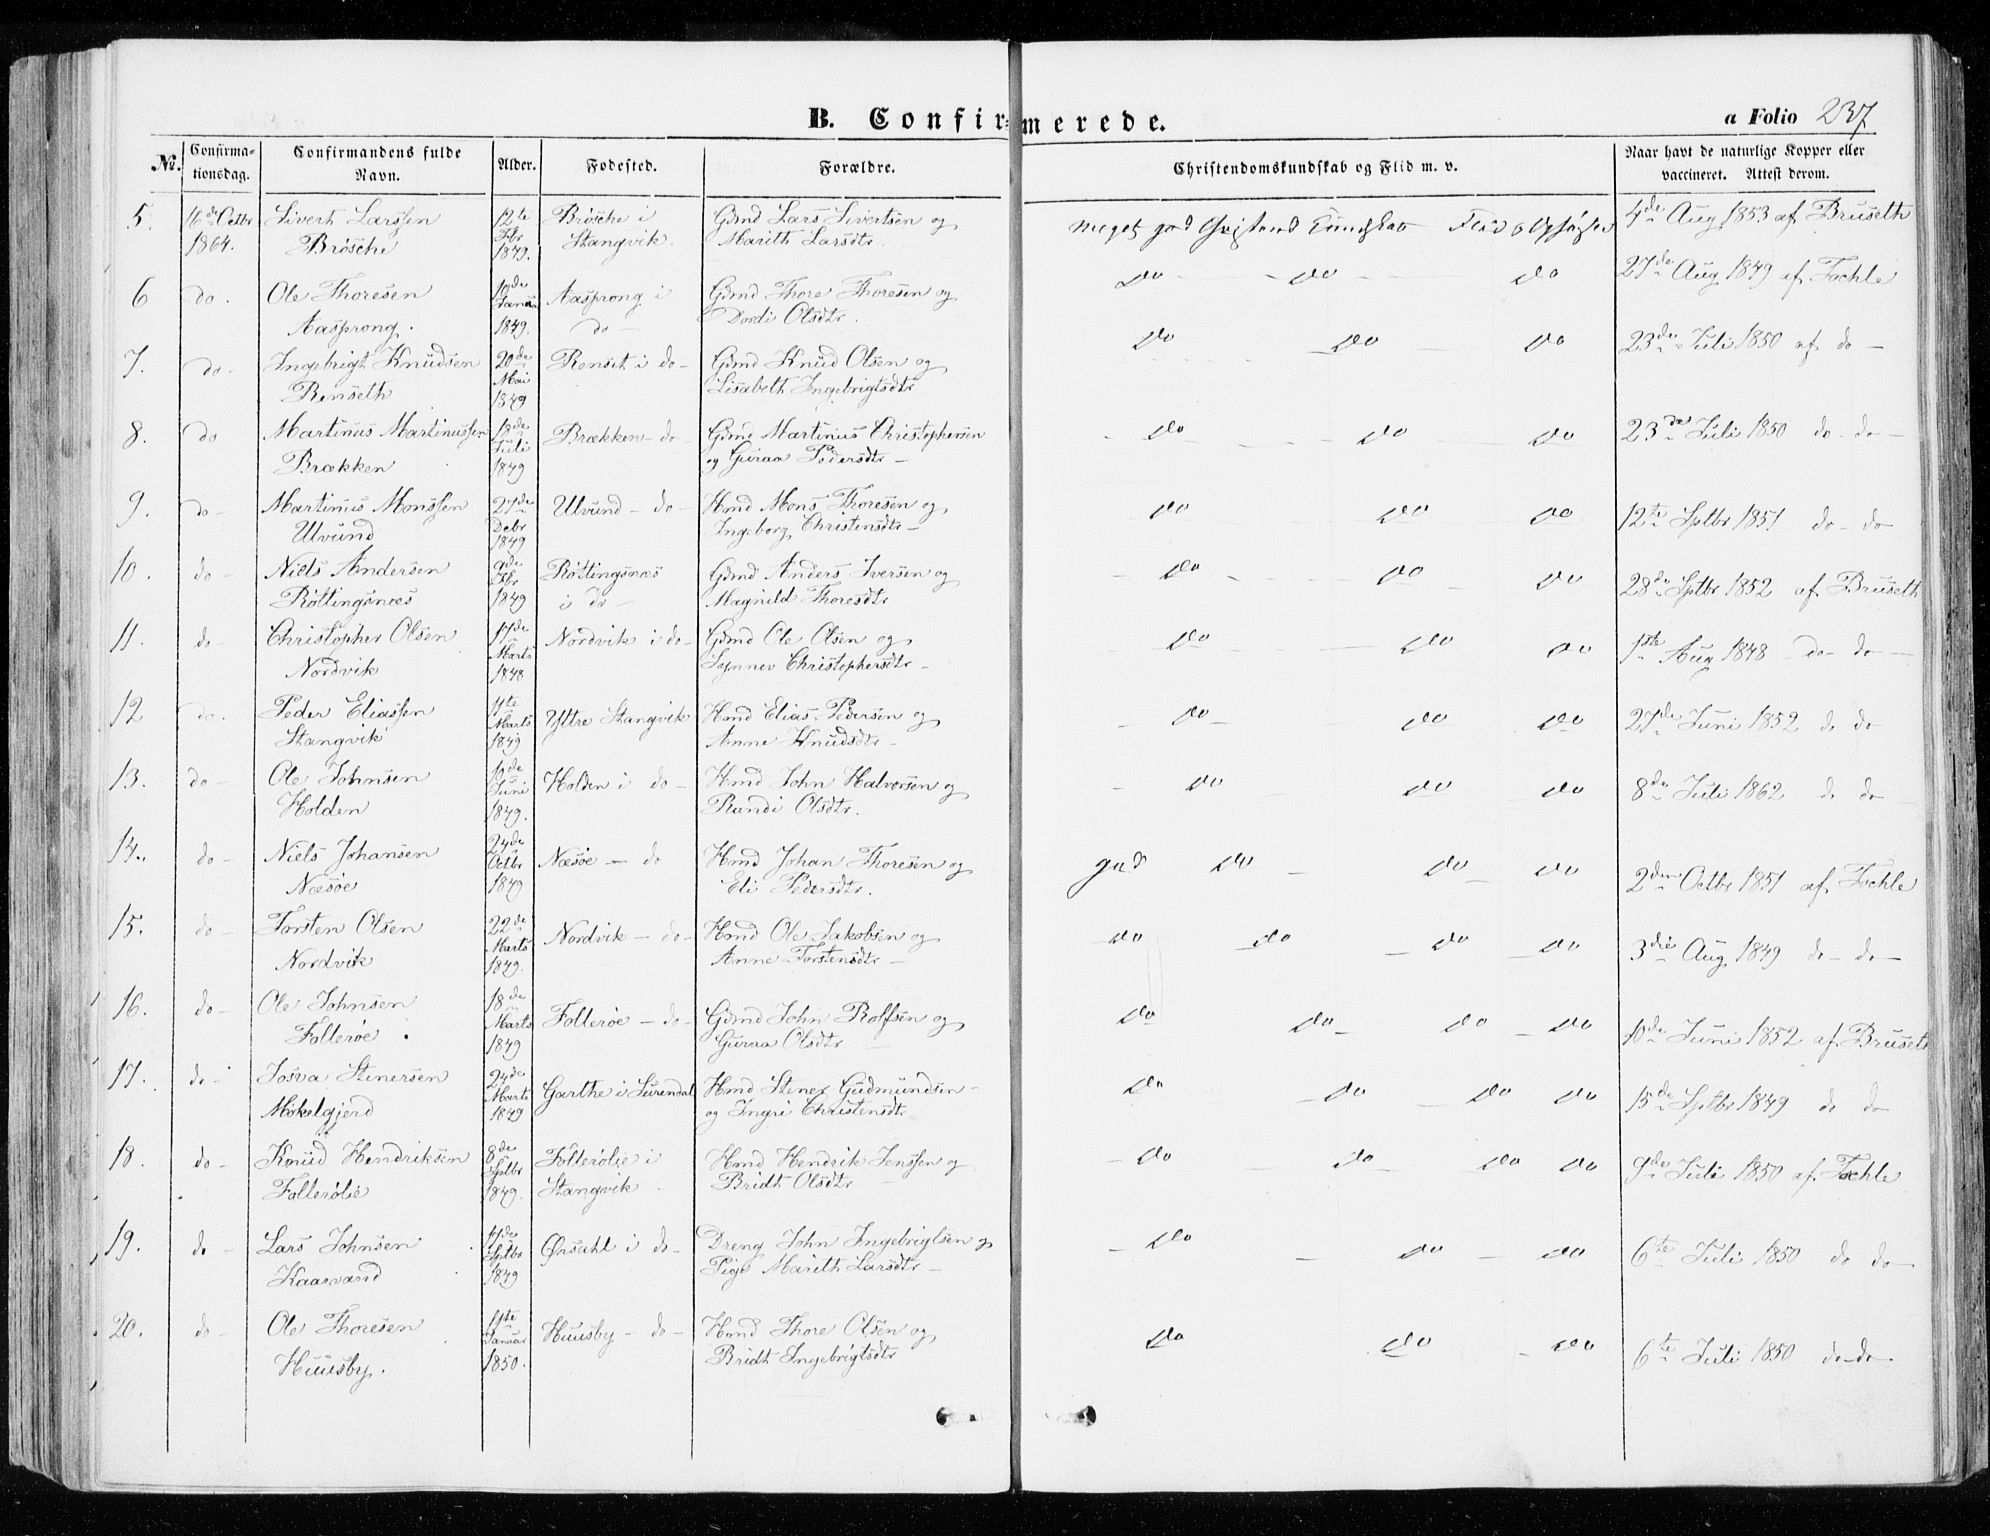 B. Confirmerede.
a Folio 237
No.
Confirmationsdag.
Confirmandens fulde Navn.
Alder.
Fødested.
Forældre.
Christendomskundskab og Flid m. v.
Naar havt de naturlige Kopper eller vaccineret. Attest derom.
5. 16de Octbr Sivert Larssen 12te Brøsche i Gdmd Lars Sivertsen og meget god Flid 4de Aug 1853 af Bruseth
1864. Brøsche Fbr 1849. Stangvik. Marith Larsdtr.
6 do. Ole Thoresen 10de Aasprong i Gdmd Thore Thoresen og do do do 27de Aug 1849 af Fochle
Aasprong. Januar 1849. do Dordi Olsdtr.
7. do Ingebrigt Knudsen 20de Renset i do Gdmd Knud Olsen og do do do 23de Juli 1850 af do
Renseth Mai 1849 Lisabeth Ingebrigtsdtr
8. do Martinus Martinussen 18de Brækken do Gdmd Martinius Christophersen do do do 23de Juli 1850 do do
Brækken Juli 1849 og Guraa Pedersdtr
9. do Martinus Monssen 27de Ulvund do Hmd Mons Thoresen og do do do 12te Sptbr 1851 do do
Ulvund Debr 1849 Ingeborg Christensdtr
10. do Niels Andersen 9de Røttingsnæs Gdmd Anders Iversen og do do do 28de Sptbr 1852 af Bruseth
Røttingsnæs Fbr 1849 i do Magnild Thoresdtr
11. do Christopher Olsen 17de Nordvik i do Gdmd Ole Olsen og do do do 1ste Aug 1848 do do
Nordvik Marts 1848 Synnev Christophersdtr
12 do. Peder Eliassen Yttre Stangvik Hmd Elias Pedersen og do do do 27de Juni 1852 do do
Stangvik Marts 1849 Anne Knudsdtr
13. do Ole Johnsen 10de Holden i do Hmd John Halvorsen og do do do 8de Juli 1862 do do
Holden Juni 1849. Randi Olsdtr.
14. do Niels Johansen 24de Næsøe do Hmd Johan Thoresen og god do do do 2den Octbr 1851 af Fochle
Næsøe Octbr 1849 Eli Pedersdtr.
15. do Torsten Olsen 22de Nordvik do Hmd Ole Jakobsen og do do do do 3die Aug 1849 do do
Nordvik Marts 1849. Anne Torstensdtr
16. do Ole Johnsen 18de Follerøe do Gdmd John Rolfsen og do do do do 10de Juni 1852 af Bruseth
Follerøe Marts 1849 Guraa Olsdtr
17. do Josva Stenersen 24de Garthe i Surendal Hmd Stener Gudmundsen do do do do 15de Sptbr 1849 do do
Møkelgjerd Marts 1849 og Ingri Christensdtr
18. do Knud Hendriksen 8de Follerølie i Hmd Hendrik Jenssen og do do do do 9de Juli 1850 af Fochle
Follerølie Sptbr 1849. Stangvik Bridt Olsdtr
19. do Lars Johnsen Ørsahl i do Dreng John Ingebrigtsen og do do do 6te Juli 1850 do do
Kaarvand Sptbr 1849 Pige Marith Larsdtr
20. do Ole Thoresen 11te Huusby do Hmd Thore Olsen og do do do 6te Juli 1850 do do
Huusby. Januar 1850. Bridt Ingebrigtsdtr